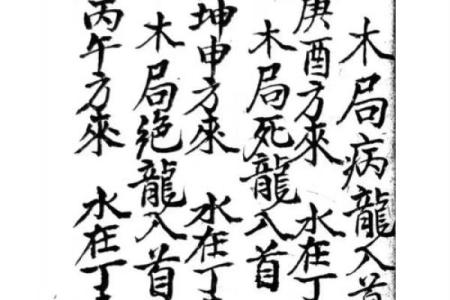 木局病龍入首
庚酉方來 水在丁
木局死龍入首
坤申方來 水在丁
木局絶龍入首
丙午方來 水在丁